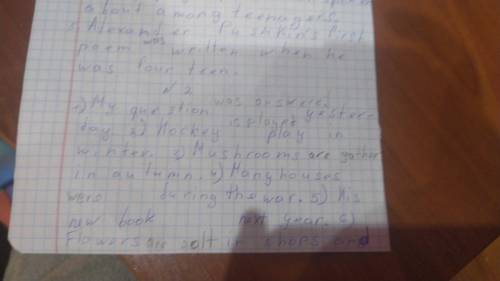 about among teenagers.
5 Alexander Pushkin's first
poem was written when he
was four teen.
№ 2
1) My question was answered yester-
day. 2) Hockey is played play in
winter. 3) Mushrooms are gather
in autumn. 4) Many houses
were during the war. 5) His
new book next year. 6)
Flowers are solt in shops and